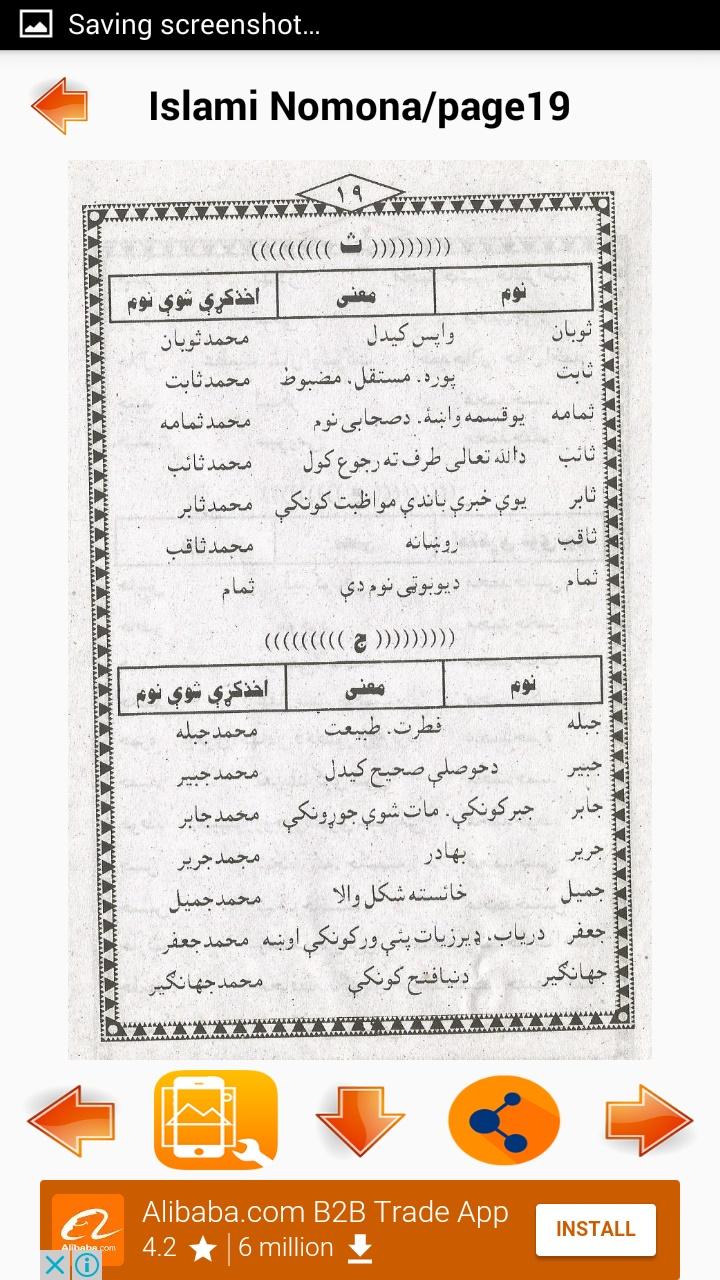 Saving screenshot...
Islami Nomona/page19
١٩
((((((((( ث )))))))))
نوم معنی اخذکړې شوې نوم
ثوبان واپس کیدل محمدثوبان
ثابت پوره. مستقل. مضبوط محمدثابت
ثمامه یوقسمه واښهٔ. دصحابی نوم محمدثمامه
ثائب دالله تعالی طرف ته رجوع کول محمدثائب
ثابر یوې خبرې باندې مواظبت کونکې محمدثابر
ثاقب روښانه محمدثاقب
ثمام دیوبوټی نوم دې ثمام
((((((((( ج )))))))))
نوم معنی اخذکړې شوې نوم
جبله فطرت. طبیعت محمدجبله
جبیر دحوصلې صحیح کیدل محمدجبیر
جابر جبرکونکې. مات شوې جوړونکې محمدجابر
جریر بهادر محمدجریر
جمیل خائسته شکل والا محمدجمیل
جعفر دریاب. ډیرزیات پئې ورکونکې اوښه محمدجعفر
جهانګیر دنیافتح کونکې محمدجهانګیر
Alibaba.com B2B Trade App
4.2 6 million
INSTALL
Alibaba.com